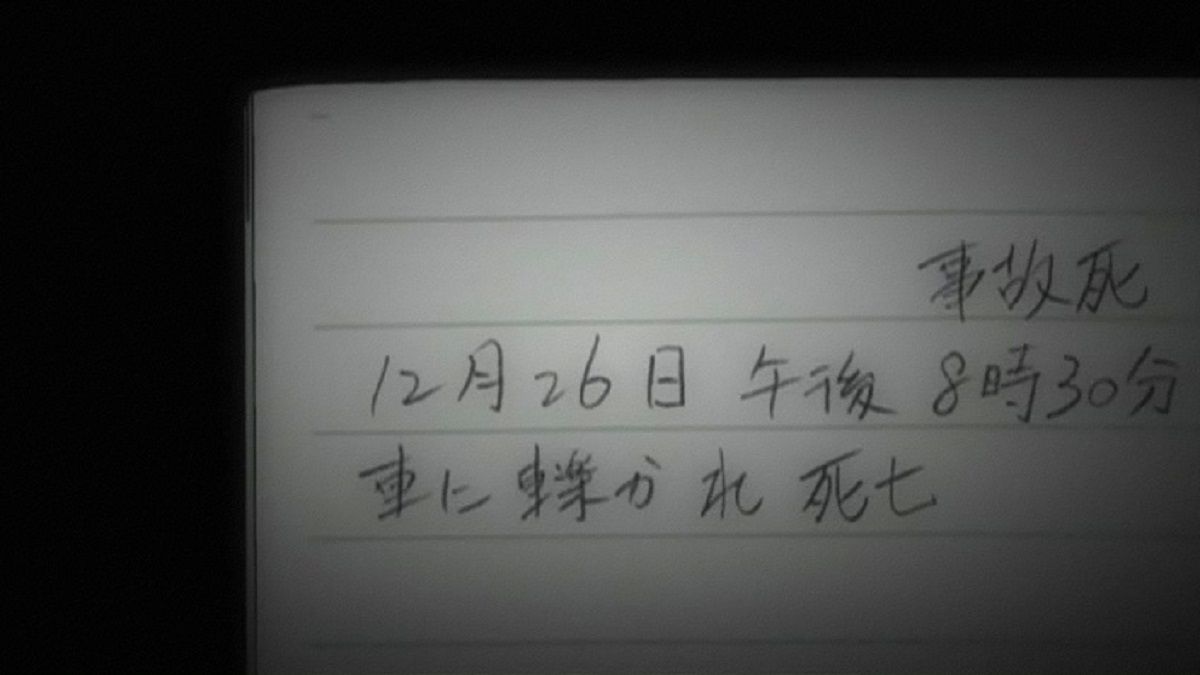 事故死
12月26日 午後 8時30分
車に轢かれ 死亡